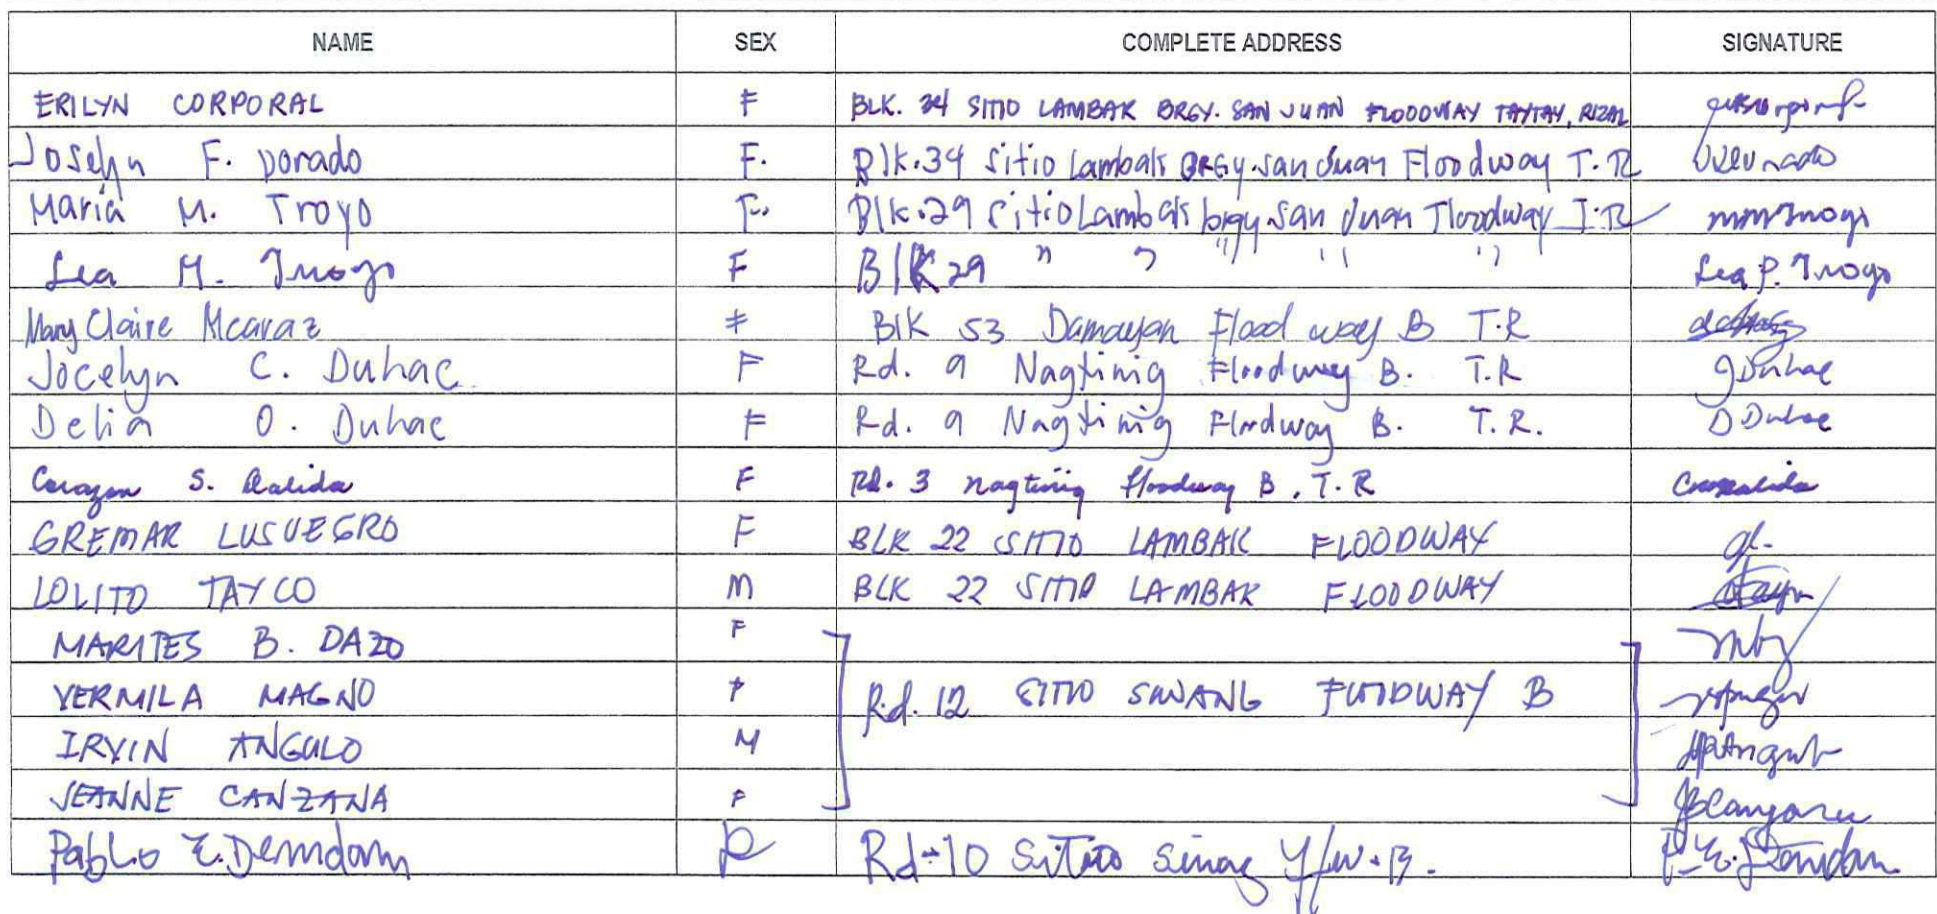 NAME SEX COMPLETE ADDRESS SIGNATURE
ERILYN CORPORAL F BLK. 34 SITIO LAMBAK BRGY. SAN JUAN FLOODWAY TAYTAY, RIZAL
Joselyn F. Dorado F. Blk.34 Sitio Lambak BRGY. San Juan Floodway T.R
Maria M. Troyo F. Blk.29 Sitio Lambak brgy. San Juan Floodway T.R
Lea M. Troyo F Blk 29 " " " " " Lea P. Troyo
Mary Claire Mcaraz F Blk 53 Damayan Flood way B T.R
Jocelyn C. Duhac F Rd. 9 Nagtinig Floodway B. T.R JDuhac
Delia O. Duhac F Rd. 9 Nagtinig Floodway B. T.R. D Duhac
Corazon S. Qalida F Rd. 3 nagtinig floodway B. T.R
GREMAR LUSUEGRO F BLK 22 SITIO LAMBAK FLOODWAY
LOLITO TAYCO M BLK 22 SITIO LAMBAK FLOODWAY
MARITES B. DAZO F
VERMILA MAGNO F Rd. 12 SITIO SINANG FLOODWAY B
IRVIN ANGULO M
JEANNE CANZANA F
Pablo E. Demdam Rd-10 Sitio Sinag F/W.B.